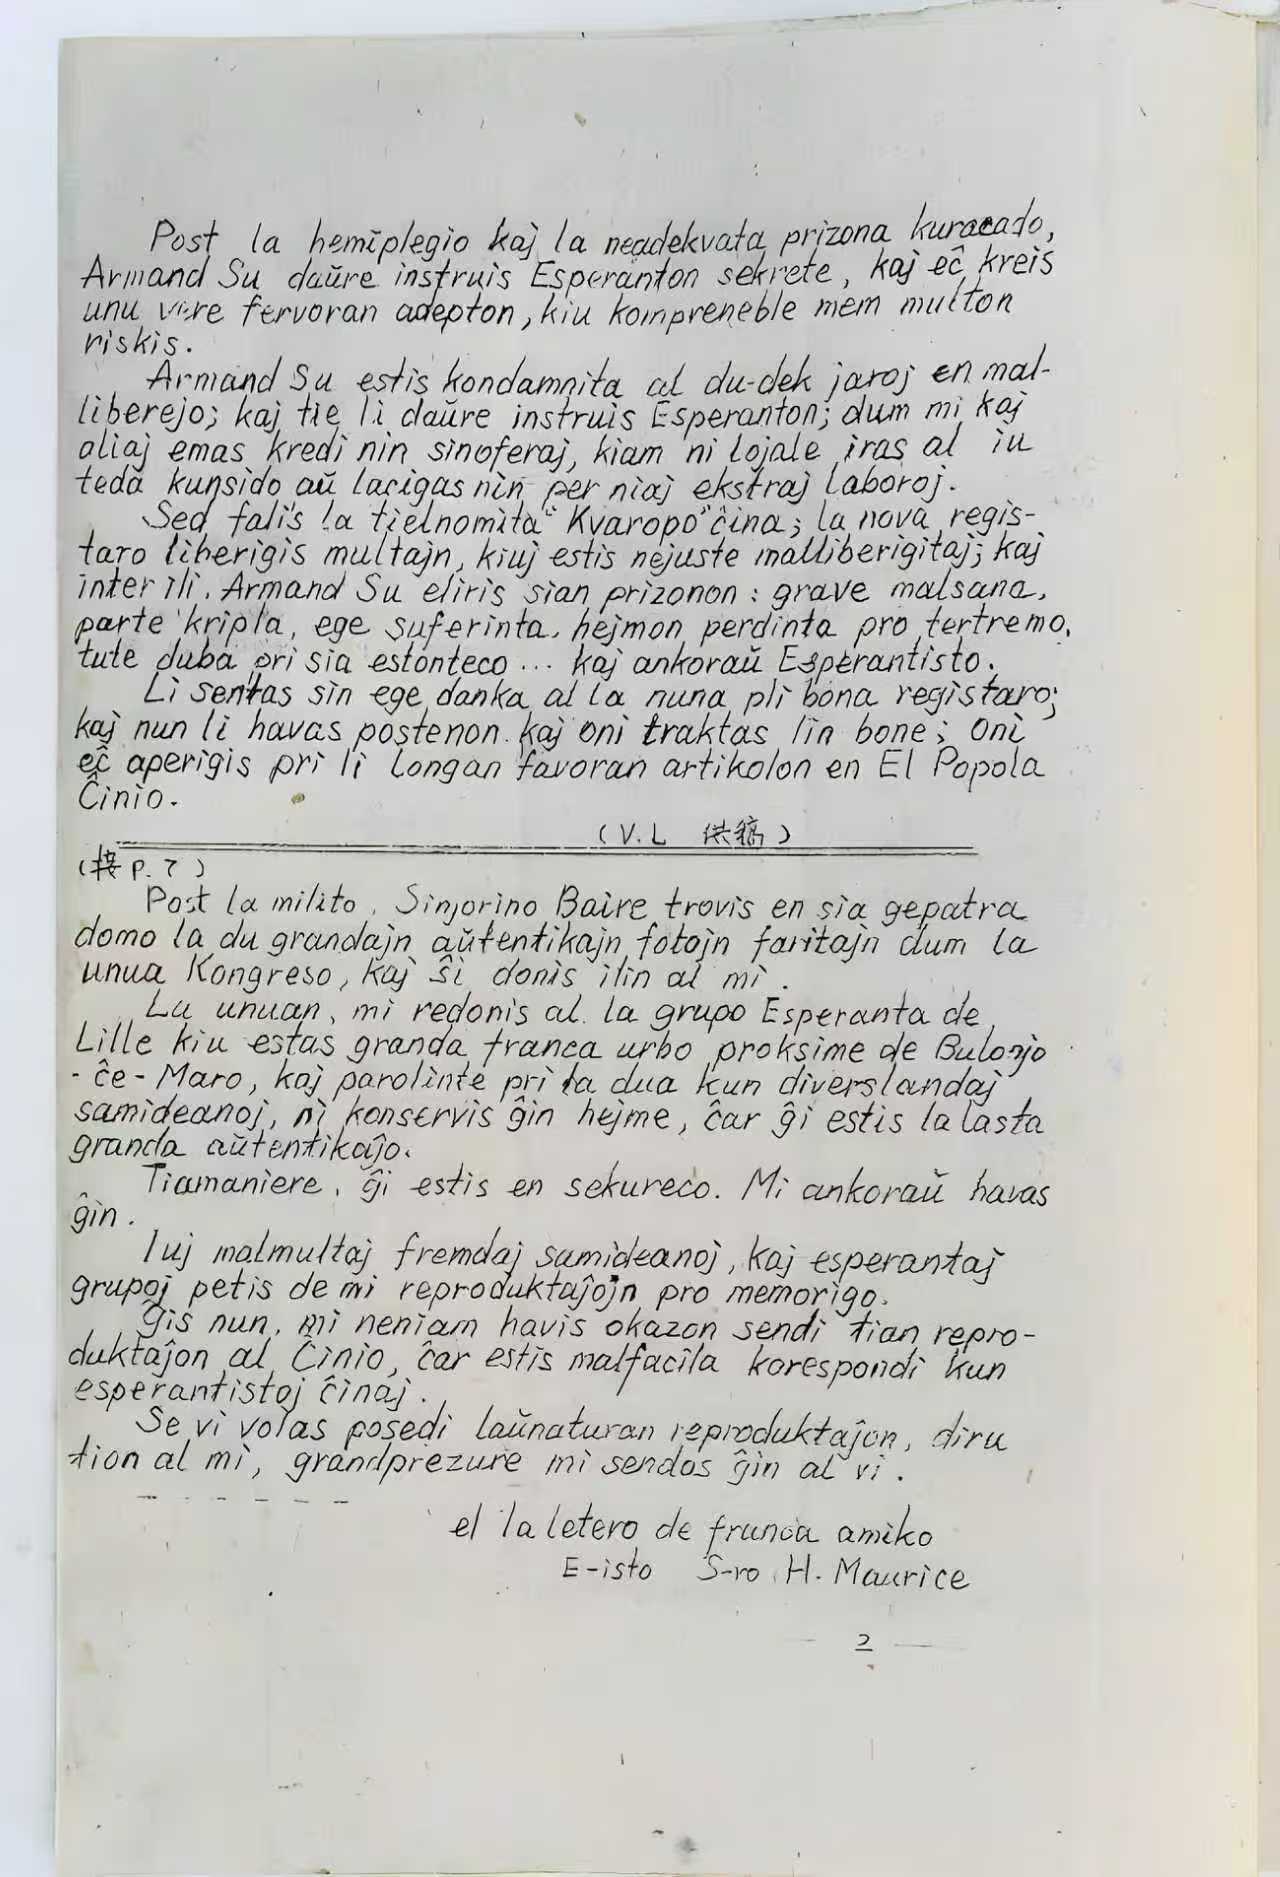 Post la hemiplegio kaj la neadekvata prizona kuracado,
Armand Su daŭre instruis Esperanton sekrete, kaj eĉ kreis
unu vere fervoran adepton, kiu kompreneble mem multon
riskis.
Armand Su estis kondamnita al du-dek jaroj en mal-
liberejo; kaj tie li daŭre instruis Esperanton; dum mi kaj
aliaj emas kredi nin sinoferaj, kiam ni lojale iras al iu
teda kunsido aŭ lacigas nin per niaj ekstraj laboroj.
Sed falis la tielnomita "Kvaropo" ĉina; la nova regis-
taro liberigis multajn, kiuj estis nejuste malliberigitaj; kaj
inter ili, Armand Su eliris sian prizonon: grave malsana,
parte kripla, ege suferinta, hejmon perdinta pro tertremo,
tute duba pri sia estonteco... kaj ankoraŭ Esperantisto.
Li sentas sin ege danka al la nuna pli bona registaro;
kaj nun li havas postenon kaj oni traktas lin bone; oni
eĉ aperigis pri li longan favoran artikolon en El Popola
Ĉinio.
(V.L 供稿)
(接 P. 7)
Post la milito, Sinjorino Baire trovis en sia gepatra
domo la du grandajn aŭtentikajn fotojn faritajn dum la
unua Kongreso, kaj ŝi donis ilin al mi.
La unuan, mi redonis al la grupo Esperanta de
Lille kiu estas granda franca urbo proksime de Bulonjo
-ĉe-Maro, kaj parolinte pri la dua kun diverslandaj
samideanoj, ni konservis ĝin hejme, ĉar ĝi estis la lasta
granda aŭtentikaĵo.
Tiamaniere, ĝi estis en sekureco. Mi ankoraŭ havas
ĝin.
Iuj malmultaj fremdaj samideanoj, kaj esperantaj
grupoj petis de mi reproduktaĵojn pro memorigo.
Ĝis nun, mi neniam havis okazon sendi tian repro-
duktaĵon al Ĉinio, ĉar estis malfacila korespondi kun
esperantistoj ĉinaj.
Se vi volas posedi laŭnaturan reproduktaĵon, diru
tion al mi, grandprezure mi sendos ĝin al vi.
el la letero de franca amiko
E-isto S-ro H. Maurice
2